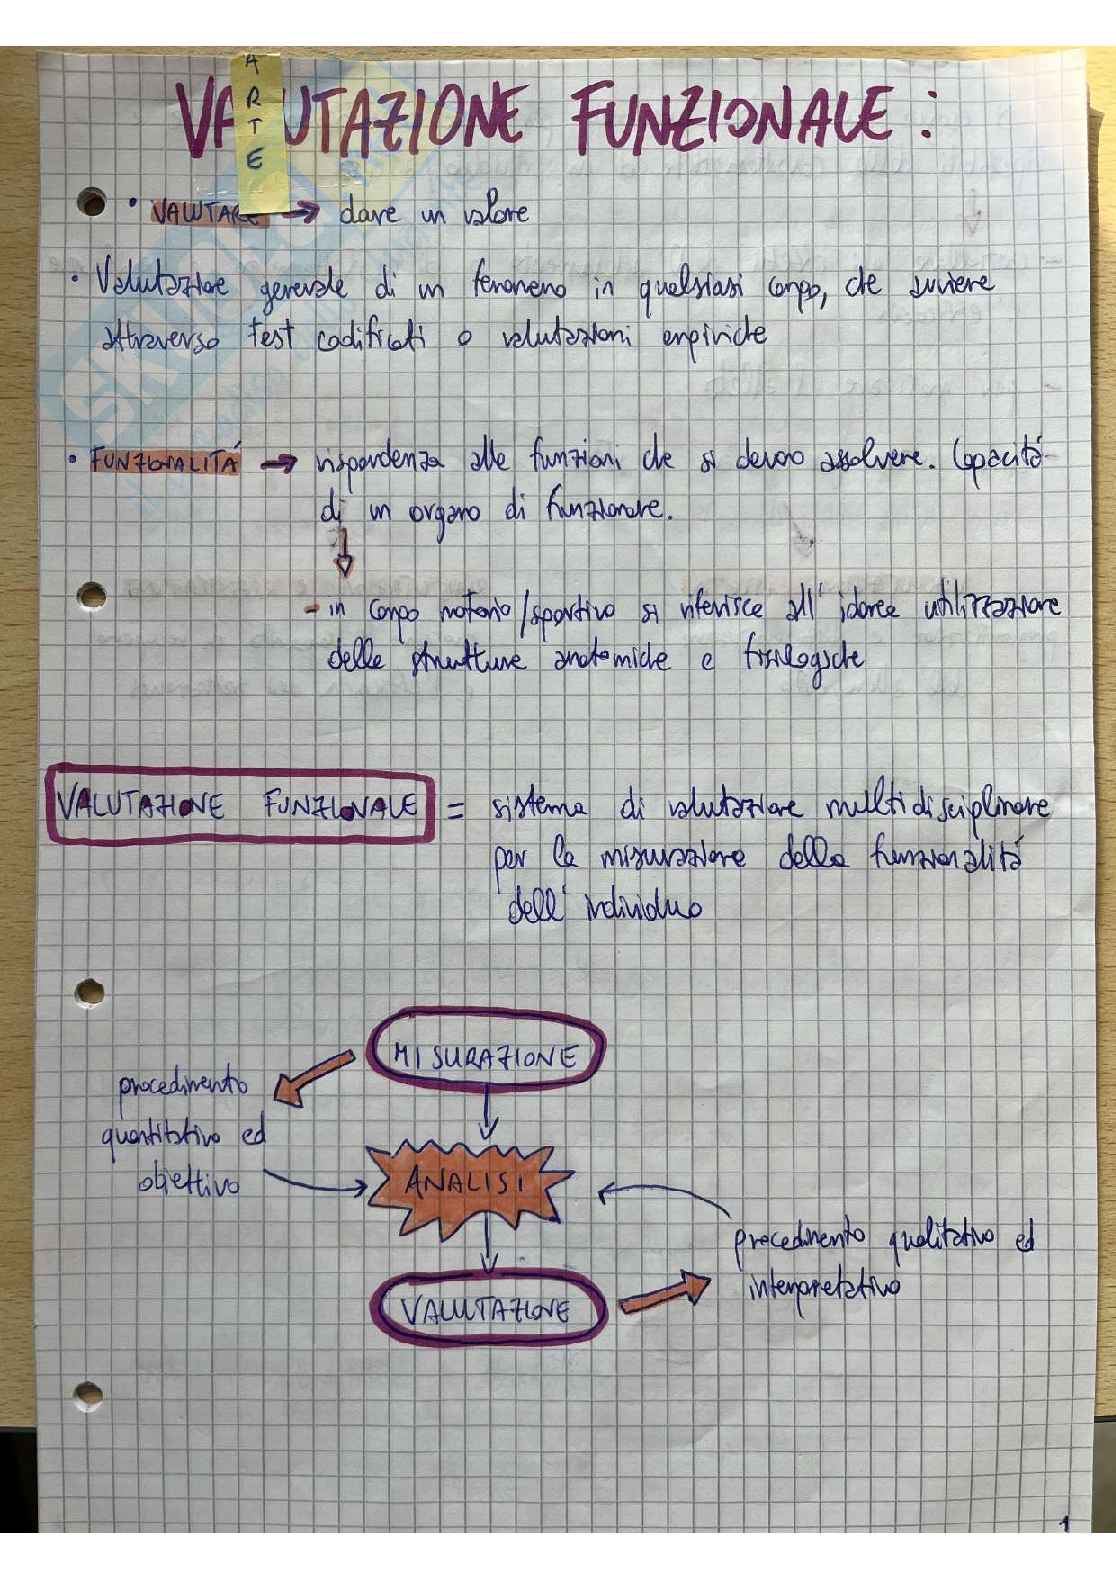 ARTE
VALUTAZIONE FUNZIONALE:
• VALUTARE → dare un valore
• Valutazione generale di un fenomeno in qualsiasi campo, che avviene
attraverso test codificati o valutazioni empiriche
• FUNZIONALITÁ → rispondenza alle funzioni che si devono assolvere. Capacitá
di un organo di funzionare.
↓
- in campo motorio/sportivo si riferisce all' idonea utilizzazione
delle strutture anatomiche e fisiologiche
VALUTAZIONE FUNZIONALE = sistema di valutazione multidisciplinare
per la misurazione della funzionalitá
dell' individuo
MISURAZIONE
procedimento
quantitativo ed
obiettivo
ANALISI
procedimento qualitativo ed
interpretativo
VALUTAZIONE
1